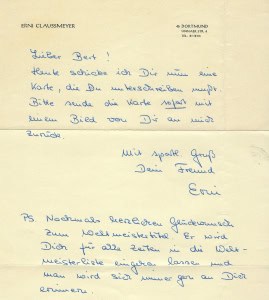 ERNI CLAUSSMEYER
46 DORTMUND
Lieber Bert!
Heute schicke ich Dir nun eine
Karte, die Du unterschreiben mußt.
Bitte sende die Karte sofort mit
einem Bild von Dir an mich
zurück.
Mit sportl. Gruß
Dein Freund
Erni
PS Nochmals herzlichen Glückwunsch
zum Weltmeistertitel. Er wird
Dich für alle Zeiten in die Welt-
meisterliste eingehen lassen und
man wird sich immer gern an Dich
erinnern.